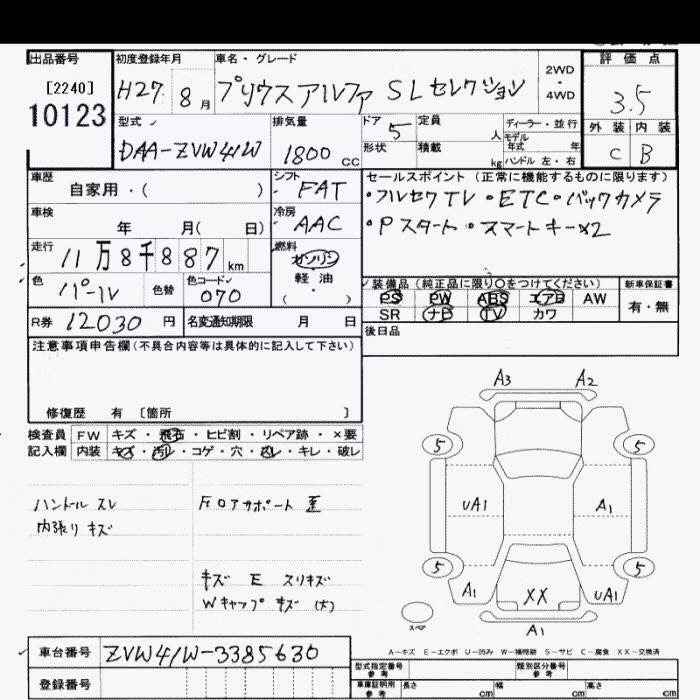 出品番号
[2240]
10123
初度登録年月
H27 8 月
車名・グレード
プリウスアルファ SLセレクション
2WD
・
4WD
評価点
3.5
型式
DAA-ZVW41W
排気量
1800 CC
ドア 5
形状
定員 人
積載 kg
ディーラー・並行
モデル年式 年
ハンドル 左・右
外装 内装
C B
車歴
自家用・( )
シフト
FAT
セールスポイント (正常に機能するものに限ります)
・フルセグTV ・ETC ・バックカメラ
・Pスタート ・スマートキー×2
車検
年 月( 日)
冷房
AAC
走行
11万8千887 km
燃料
ガソリン
軽油
( )
色
パール
色替
色コード
070
装備品 (純正品に限り○をつけてください)
PS PW ABS エアB AW
SR ナビ TV カワ
新車保証書
有・無
R券 12030 円
名変通知期限 月 日
後日品
注意事項申告欄(不具合内容等は具体的に記入して下さい)
修復歴 有 〔箇所 〕
検査員 FW キズ・飛石・ヒビ割・リペア跡・×要
記入欄 内装 キズ・汚レ・コゲ・穴・スレ・キレ・破レ
ハンドル スレ
内張り キズ
ロアサポート 歪
キズ E スリキズ
Wキャップ キズ (大)
A3 A2
5 5
UA1 A1
5 5
A1 XX UA1
A1
スペア
A-キズ E-エクボ U-凹み W-補修跡 S-サビ C-腐食 XX-交換済
車台番号 ZVW41W-3385630
登録番号
型式指定番号 参考
類別区分番号 参考
車庫証明用 参考 長さ cm 幅 cm 高さ cm